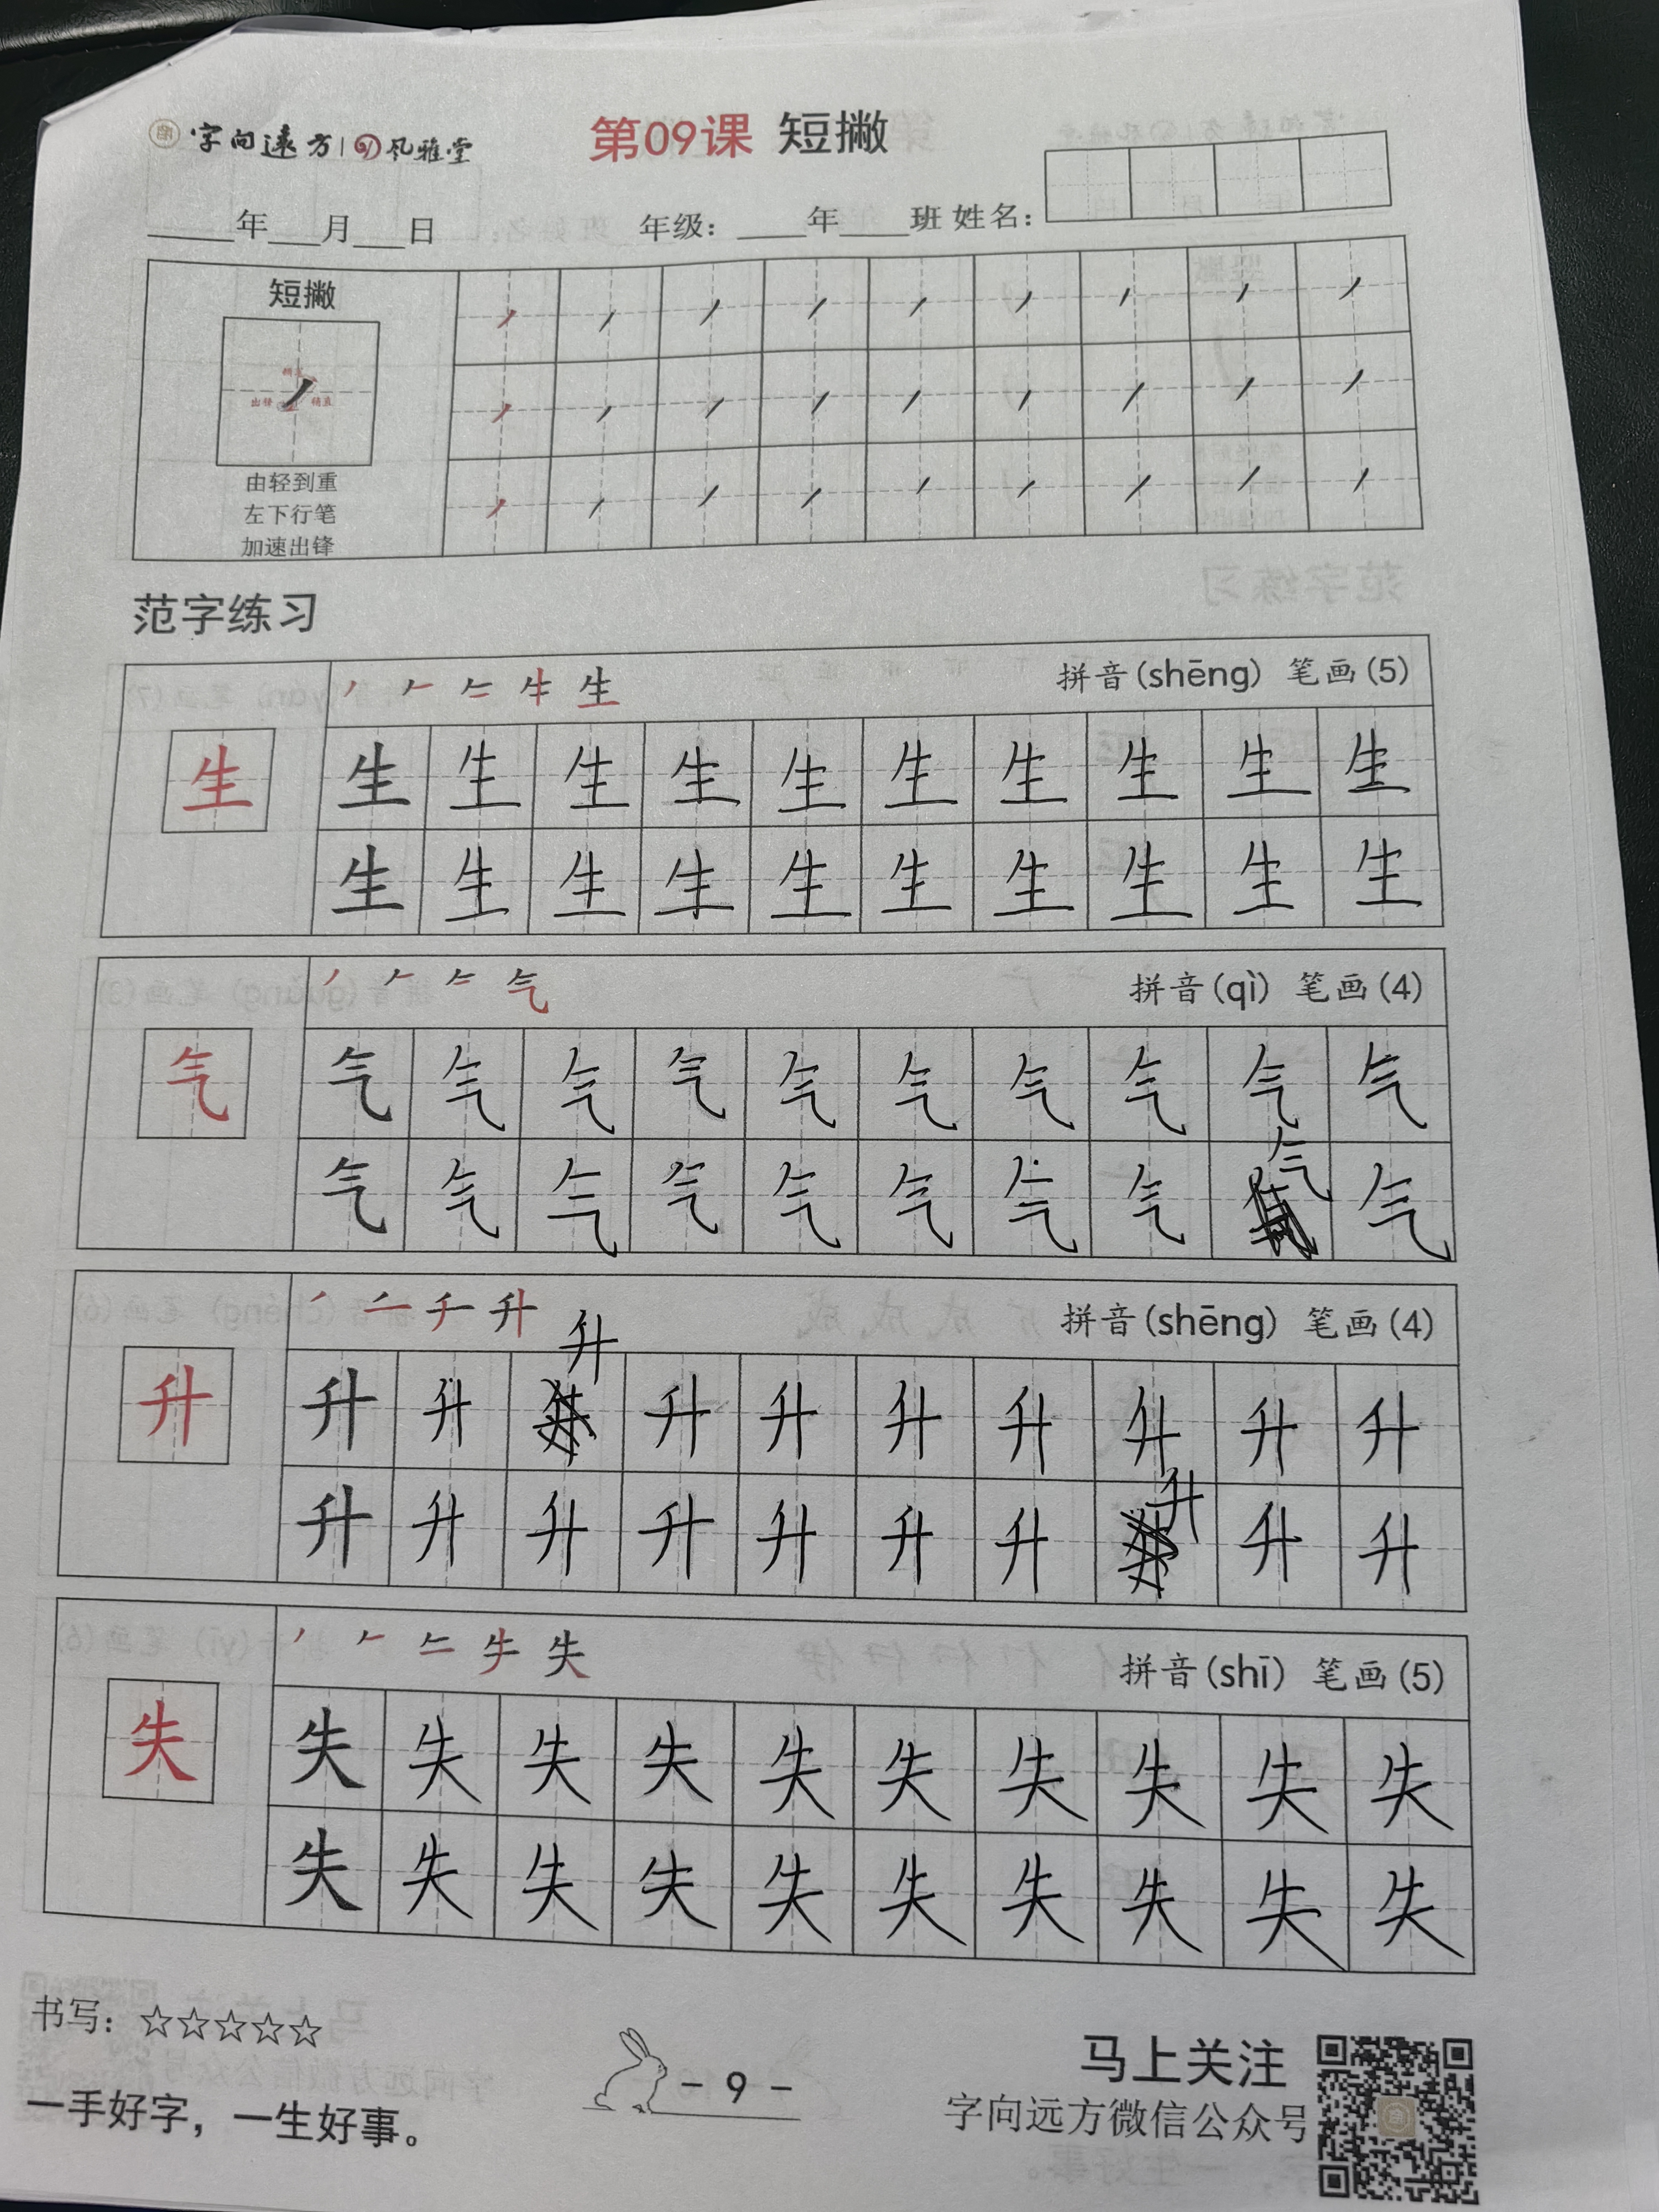 字向遠方 | 风雅堂
第09课 短撇
年 月 日 年级: 年 班 姓名:
短撇
稍直
出锋
由轻到重
左下行笔
加速出锋
范字练习
生 拼音(shēng) 笔画(5)
生 生 生 生 生 生 生 生 生 生 生
生 生 生 生 生 生 生 生 生 生
气 拼音(qì) 笔画(4)
气 气 气 气 气 气 气 气 气 气 气
气 气 气 气 气 气 气 气 气 气
升 升 拼音(shēng) 笔画(4)
升 升 升 升 升 升 升 升 升 升
升 升 升 升 升 升 升 升 升 升
失 拼音(shī) 笔画(5)
失 失 失 失 失 失 失 失 失 失 失
失 失 失 失 失 失 失 失 失 失
书写: ☆☆☆☆☆
一手好字，一生好事。
- 9 -
马上关注
字向远方微信公众号